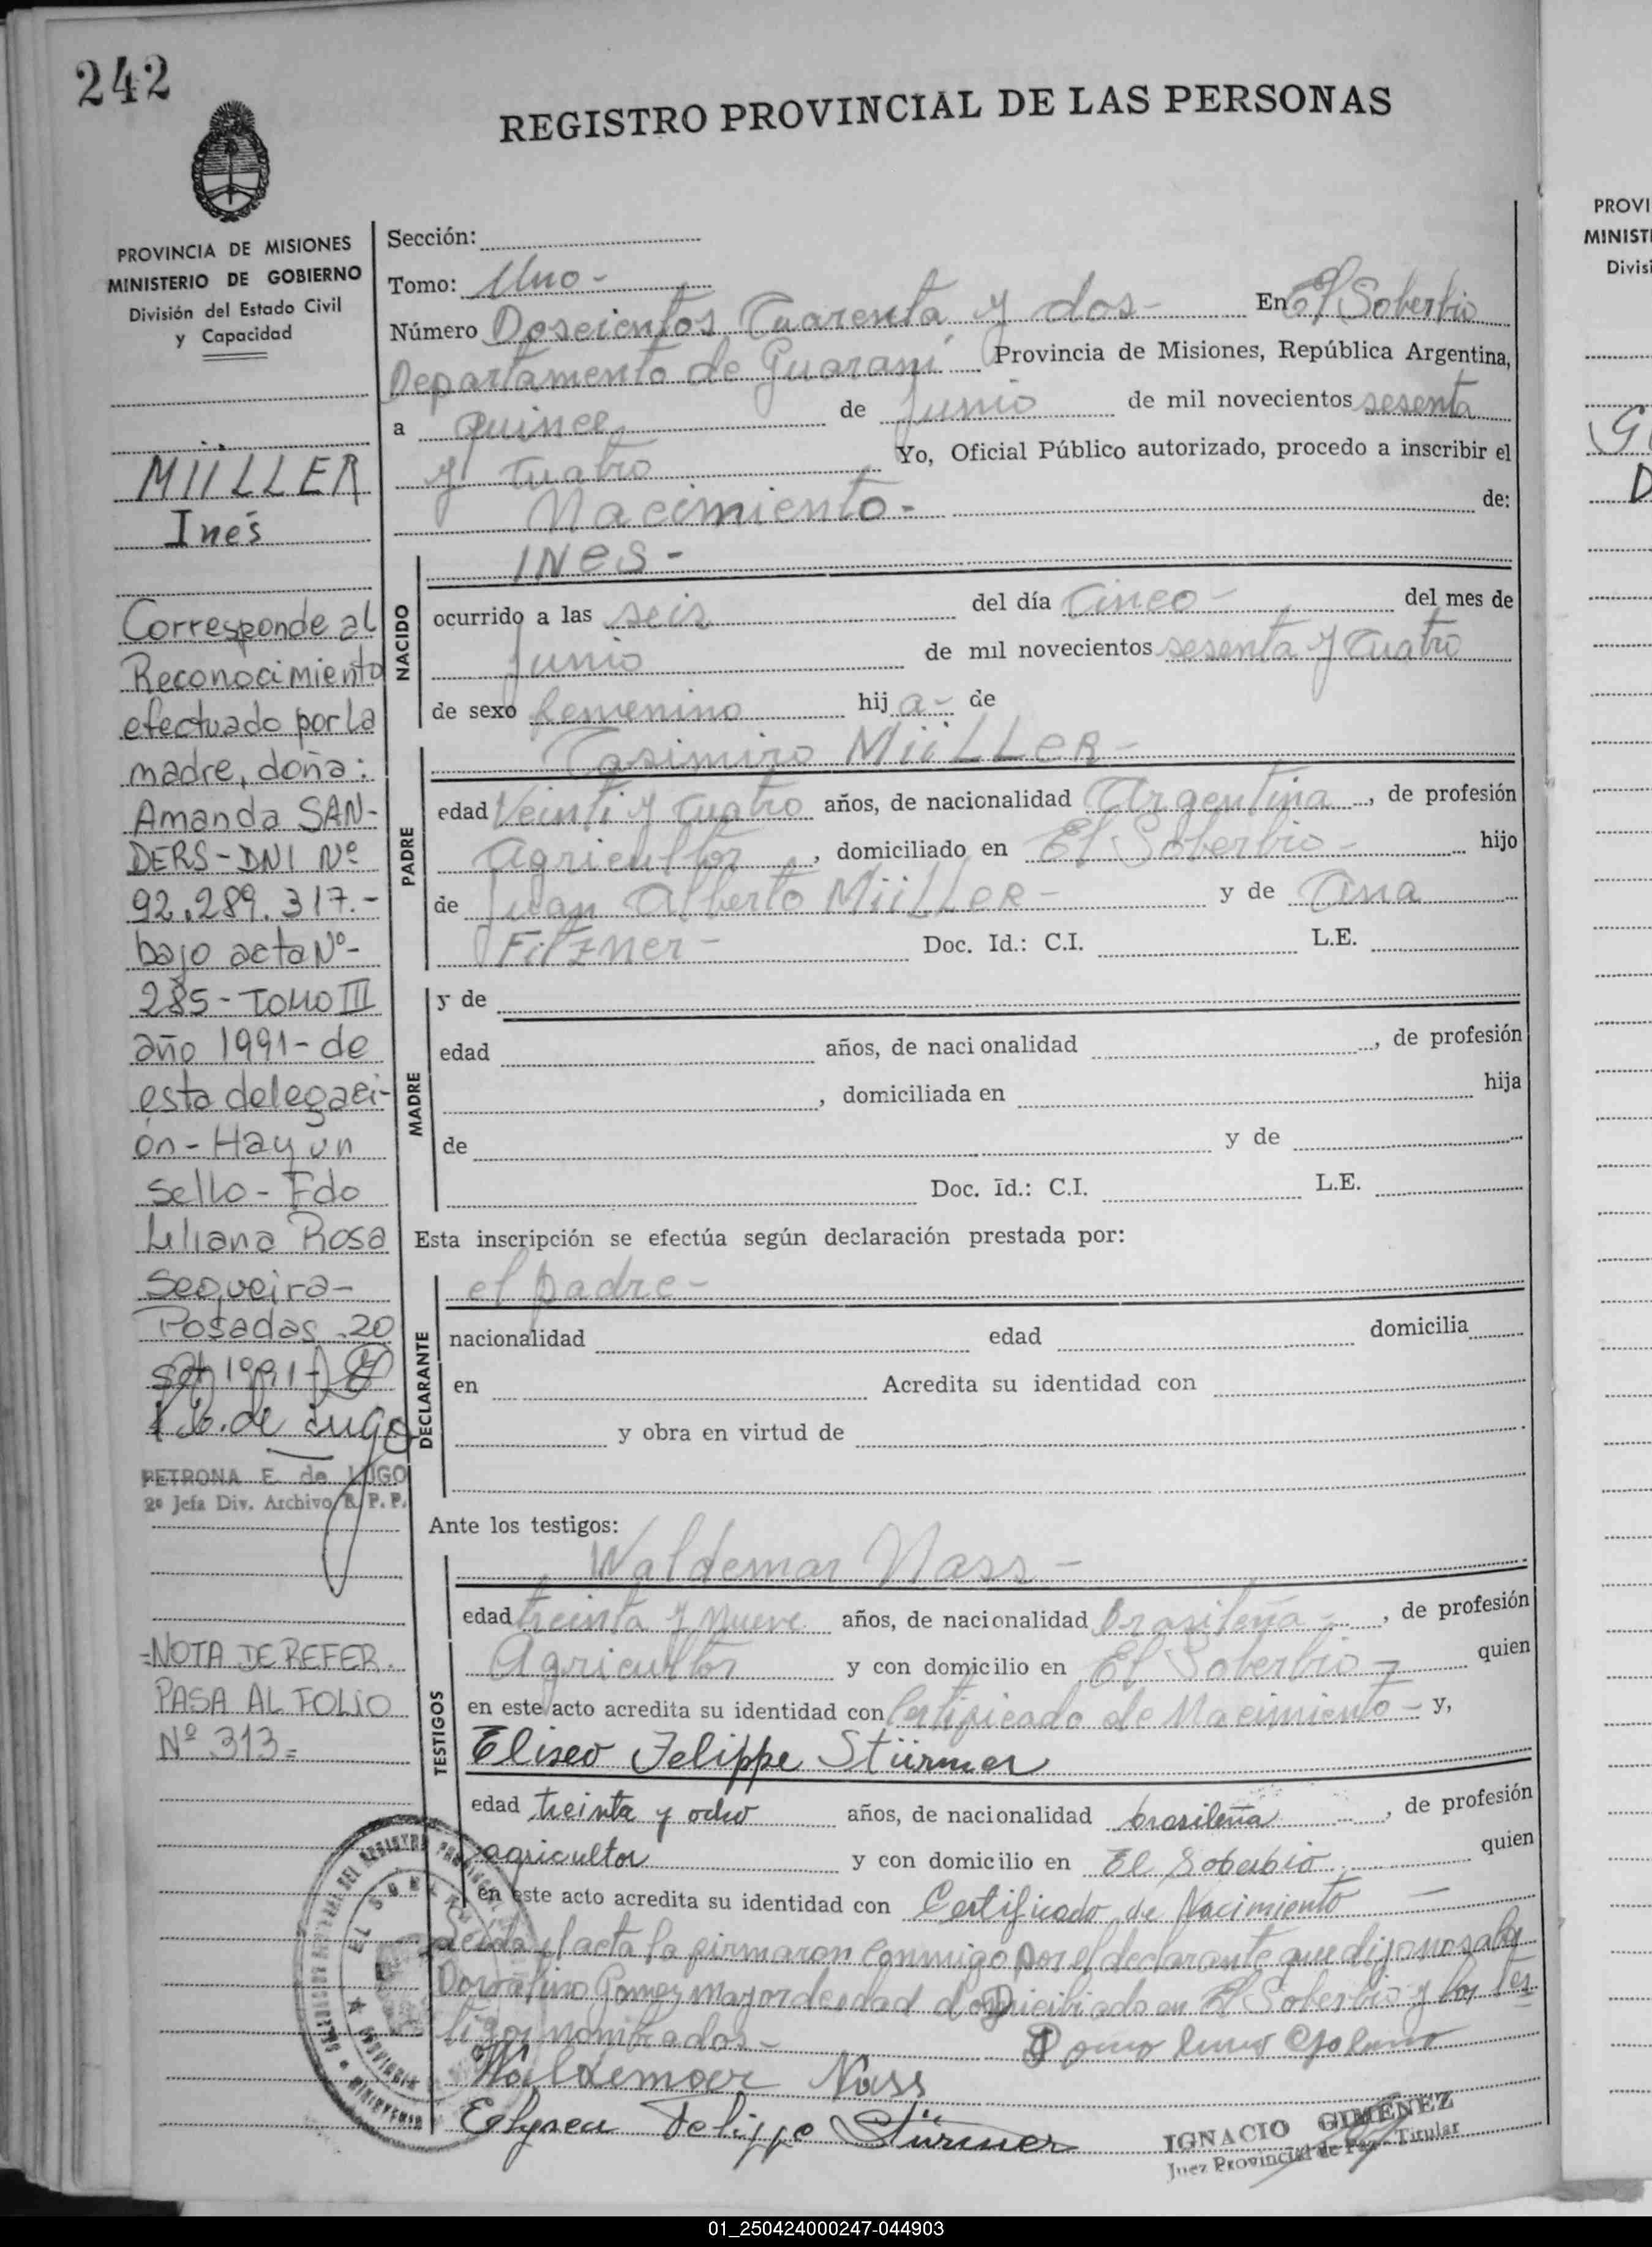 242
REGISTRO PROVINCIAL DE LAS PERSONAS
PROVINCIA DE MISIONES
MINISTERIO DE GOBIERNO
División del Estado Civil
y Capacidad
MÜLLER
Inés
Corresponde al
Reconocimiento
efectuado por la
madre, doña:
Amanda SAN-
DERS-DNI Nº
92.289.317.-
bajo acta Nº-
285-TOMO III
año 1991-de
esta delegaci-
ón-Hay un
sello-Fdo
Liliana Rosa
Sequeira-
Posadas. 20
set 1991-
de Lugo
PETRONA E. de LUGO
2º Jefa Div. Archivo R. P. P.
=NOTA DE REFER.
PASA AL FOLIO
Nº 313=
Sección:
Tomo: Uno-
Número Doscientos Cuarenta y dos- En El Soberbio
Departamento de Guaraní Provincia de Misiones, República Argentina,
a quince de junio de mil novecientos sesenta
y cuatro Yo, Oficial Público autorizado, procedo a inscribir el
Nacimiento- de:
NACIDO
INES-
ocurrido a las seis del día cinco- del mes de
junio de mil novecientos sesenta y cuatro
de sexo femenino hij a- de
PADRE
Casimiro MÜLLER-
edad Veinti y cuatro años, de nacionalidad Argentina, de profesión
Agricultor, domiciliado en El Soberbio- hijo
de Juan Alberto MÜLLER- y de Ana
Fitzner- Doc. Id.: C.I. L.E.
MADRE
y de
edad años, de nacionalidad , de profesión
, domiciliada en hija
de y de
Doc. Id.: C.I. L.E.
Esta inscripción se efectúa según declaración prestada por:
DECLARANTE
el padre-
nacionalidad edad domicilia
en Acredita su identidad con
y obra en virtud de
Ante los testigos:
TESTIGOS
Waldemar Nass-
edad treinta y nueve años, de nacionalidad brasileña-, de profesión
Agricultor y con domicilio en El Soberbio- quien
en este acto acredita su identidad con Certificado de Nacimiento- y,
Eliseo Felippe Stürmer
edad treinta y ocho años, de nacionalidad brasileña, de profesión
agricultor y con domicilio en El Soberbio quien
en este acto acredita su identidad con Certificado de Nacimiento
Leída el acta la firmaron conmigo por el declarante que dijo no saber
Gomez mayor de edad domiciliado en El Soberbio y los tes
tigos nombrados-
Waldemaer Nass
Elyseu Felippe Stürmer
IGNACIO GIMÉNEZ
Juez Provincial de Paz - Titular
EL SOBERBIO
PROVI
MINIST
Divisi
01_250424000247-044903